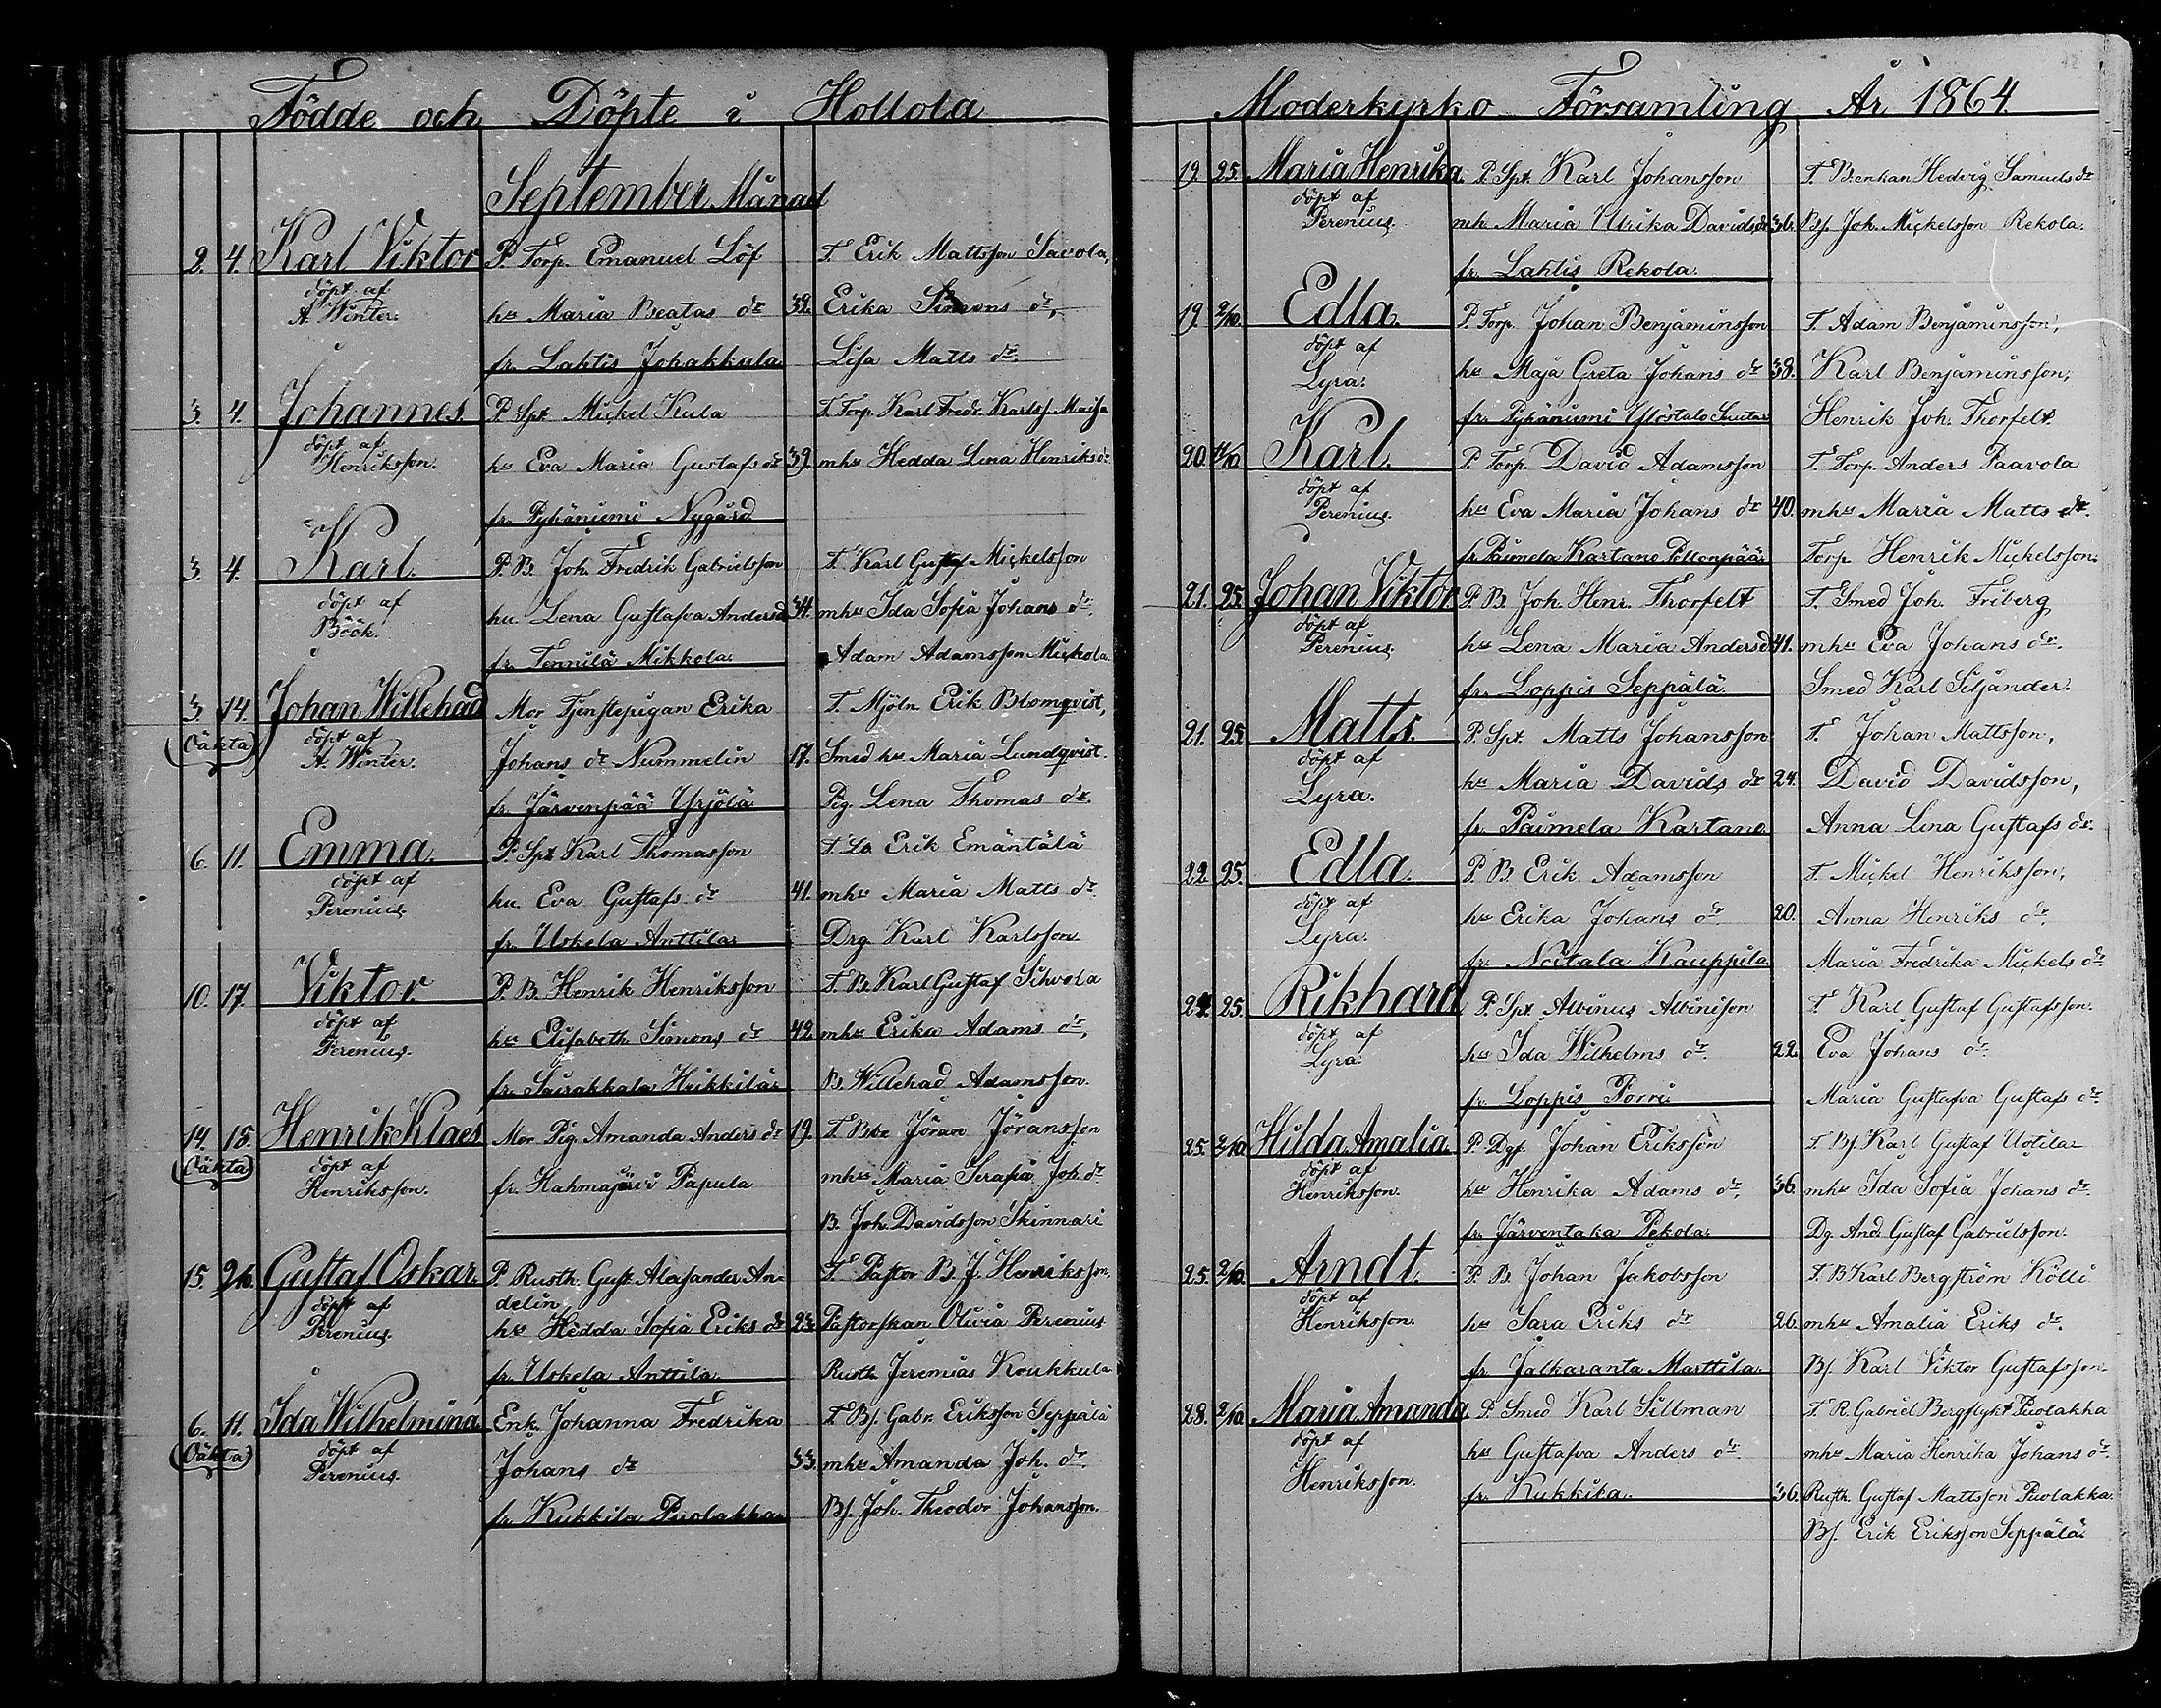 Födde och Döpte i Hollola
September Månad
2. 4. Karl Viktor P. Torp. Emanuel Löf T. Erik Mattsson Savola,
döpt af
A. Winter. hu Maria Beatas dr 32. Erika Simons dr,
fr. Lahtis Jokakkala. Lisa Matts dr
3. 4. Johannes P. Spt. Mickel Kula T. Torp. Karl Fredr. Karlss. Maija
döpt af
Henriksson. hu Eva Maria Gustafs dr 39. mhu Hedda Lena Henriks dr
fr. Pyhäniemi Nygård
3. 4. Karl. P. B. Joh. Fredrik Gabrielsson T. Karl Gustaf Mickelsson
döpt af
Böök. hu. Lena Gustafva Andersd 34. mhu Ida Sofia Johans dr,
fr. Tennilä Mikkola. Adam Adamsson Mickola.
3. 14. Johan Willehad Mor Tjenstepigan Erika T. Mjöln. Erik Blomqvist,
(Oäkta) döpt af
A. Winter. Johans dr Nummelin 17. Smed hu. Maria Lundqvist.
fr. Järvenpää Yrjölä Pig. Lena Thomas dr.
6. 11. Emma. P. Spt Karl Thomasson T. Erik Emäntälä
döpt af
Perenius. hu. Eva Gustafs dr 41. mhu Maria Matts dr
fr. Uskela Anttila Drg. Karl Karlsson
10. 17. Viktor P. B. Henrik Henriksson T. B. Karl Gustaf Sihvola
döpt af
Perenius. hu Elisabeth Simons dr 42. mhu Erika Adams dr,
fr. Sairakkala Heikkilä B. Willehad Adamsson.
14. 18. Henrik Klaes Mor Pig. Amanda Anders dr 19. T. Jöran Jöransson
(Oäkta) döpt af
Henriksson. fr. Hahmajärvi Papula mhu Maria Serafia Joh. dr
B. Joh. Davidsson Skinnari
15. 2/10. Gustaf Oskar. P. Rusth. Gust. Alexander An- T. Pastor B. J. Henriksson,
döpt af delin
Perenius. hu Hedda Sofia Eriks dr 23. Pastorskan Olivia Perenius
fr. Uskela Anttila. Rusth. Jeremias Koukkula
6. 11. Ida Wilhelmina Enk. Johanna Fredrika T. Bs. Gabr. Eriksson Seppälä
(Oäkta) döpt af
Perenius. Johans dr 33. mhu Amanda Joh. dr
fr. Kukkila Puolakka. Bs. Joh. Theodor Johansson.
Moderkyrko Församling År 1864.
19. 25. Maria Henrika. P. Spt. Karl Johansson T. B.enkan Hedvig Samuels dr
döpt af
Perenius. mh. Maria Ulrika Davidsdr 36. Bs. Joh. Mickelsson Rekola.
fr. Lahtis Rekola.
19. 2/10. Edla. P. Torp. Johan Benjaminsson T. Adam Benjaminsson,
döpt af
Lyra. hu Maja Greta Johans dr 38. Karl Benjaminsson,
fr. Pyhäniemi Henrik Joh. Thorfelt.
20. Karl. P. Torp. David Adamsson T. Torp. Anders Paavola
döpt af
Perenius. hu Eva Maria Johans dr 40. mhu Maria Matts dr.
fr. Paimela Kartano Pellonpää Torp. Henrik Mickelsson.
21. 25. Johan Viktor P. B. Joh. Henr. Thorfelt T. Smed Joh. Friberg
döpt af
Perenius. hu Lena Maria Andersd 41. mhu Eva Johans dr.
fr. Loppis Seppälä Smed Karl Siljander.
21. 25. Matts. P. Spt. Matts Johansson T. Johan Mattsson,
döpt af
Lyra. hu Maria Davids dr 24. David Davidsson,
fr. Paimela Kartano Anna Lena Gustafs dr.
22. 25. Edla. P. B. Erik Adamsson T. Mickel Henriksson,
döpt af
Lyra. hu Erika Johans dr 20. Anna Henriks dr,
fr. Noitala Kauppila Maria Fredrika Mickels dr
24. 25. Rikhard P. Spt Albinus Albinisson T. Karl Gustaf Gustafsson.
döpt af
Lyra. hu Ida Wilhelms dr. 22. Eva Johans dr.
fr. Loppis Porri. Maria Gustafva Gustafs dr
25. 2/10. Hilda Amalia. P. Johan Eriksson T. Bs. Karl Gustaf Uotila
döpt af
Henriksson. hu Henrika Adams dr, 36. mhu Ida Sofia Johans dr.
fr. Järventaka Pekola. Dg. And. Gustaf Gabrielsson.
25. 2/10. Arndt. P. B. Johan Jakobsson T. B Karl Bergström Kölli
döpt af
Henriksson. hu Sara Eriks dr 26. mhu Amalia Eriks dr.
fr. Jalkaranta Marttila. Bs. Karl Viktor Gustafsson.
28. 2/10. Maria Amanda. P. Smed Karl Sillman T. R. Gabriel Bergflykt Puolakka
döpt af
Henriksson. hu Gustafva Anders dr mhu Maria Henrika Johans dr.
fr. Kukkila. 36. Rusth. Gustaf Mattsson Puolakka.
Bs. Erik Eriksson Seppälä.